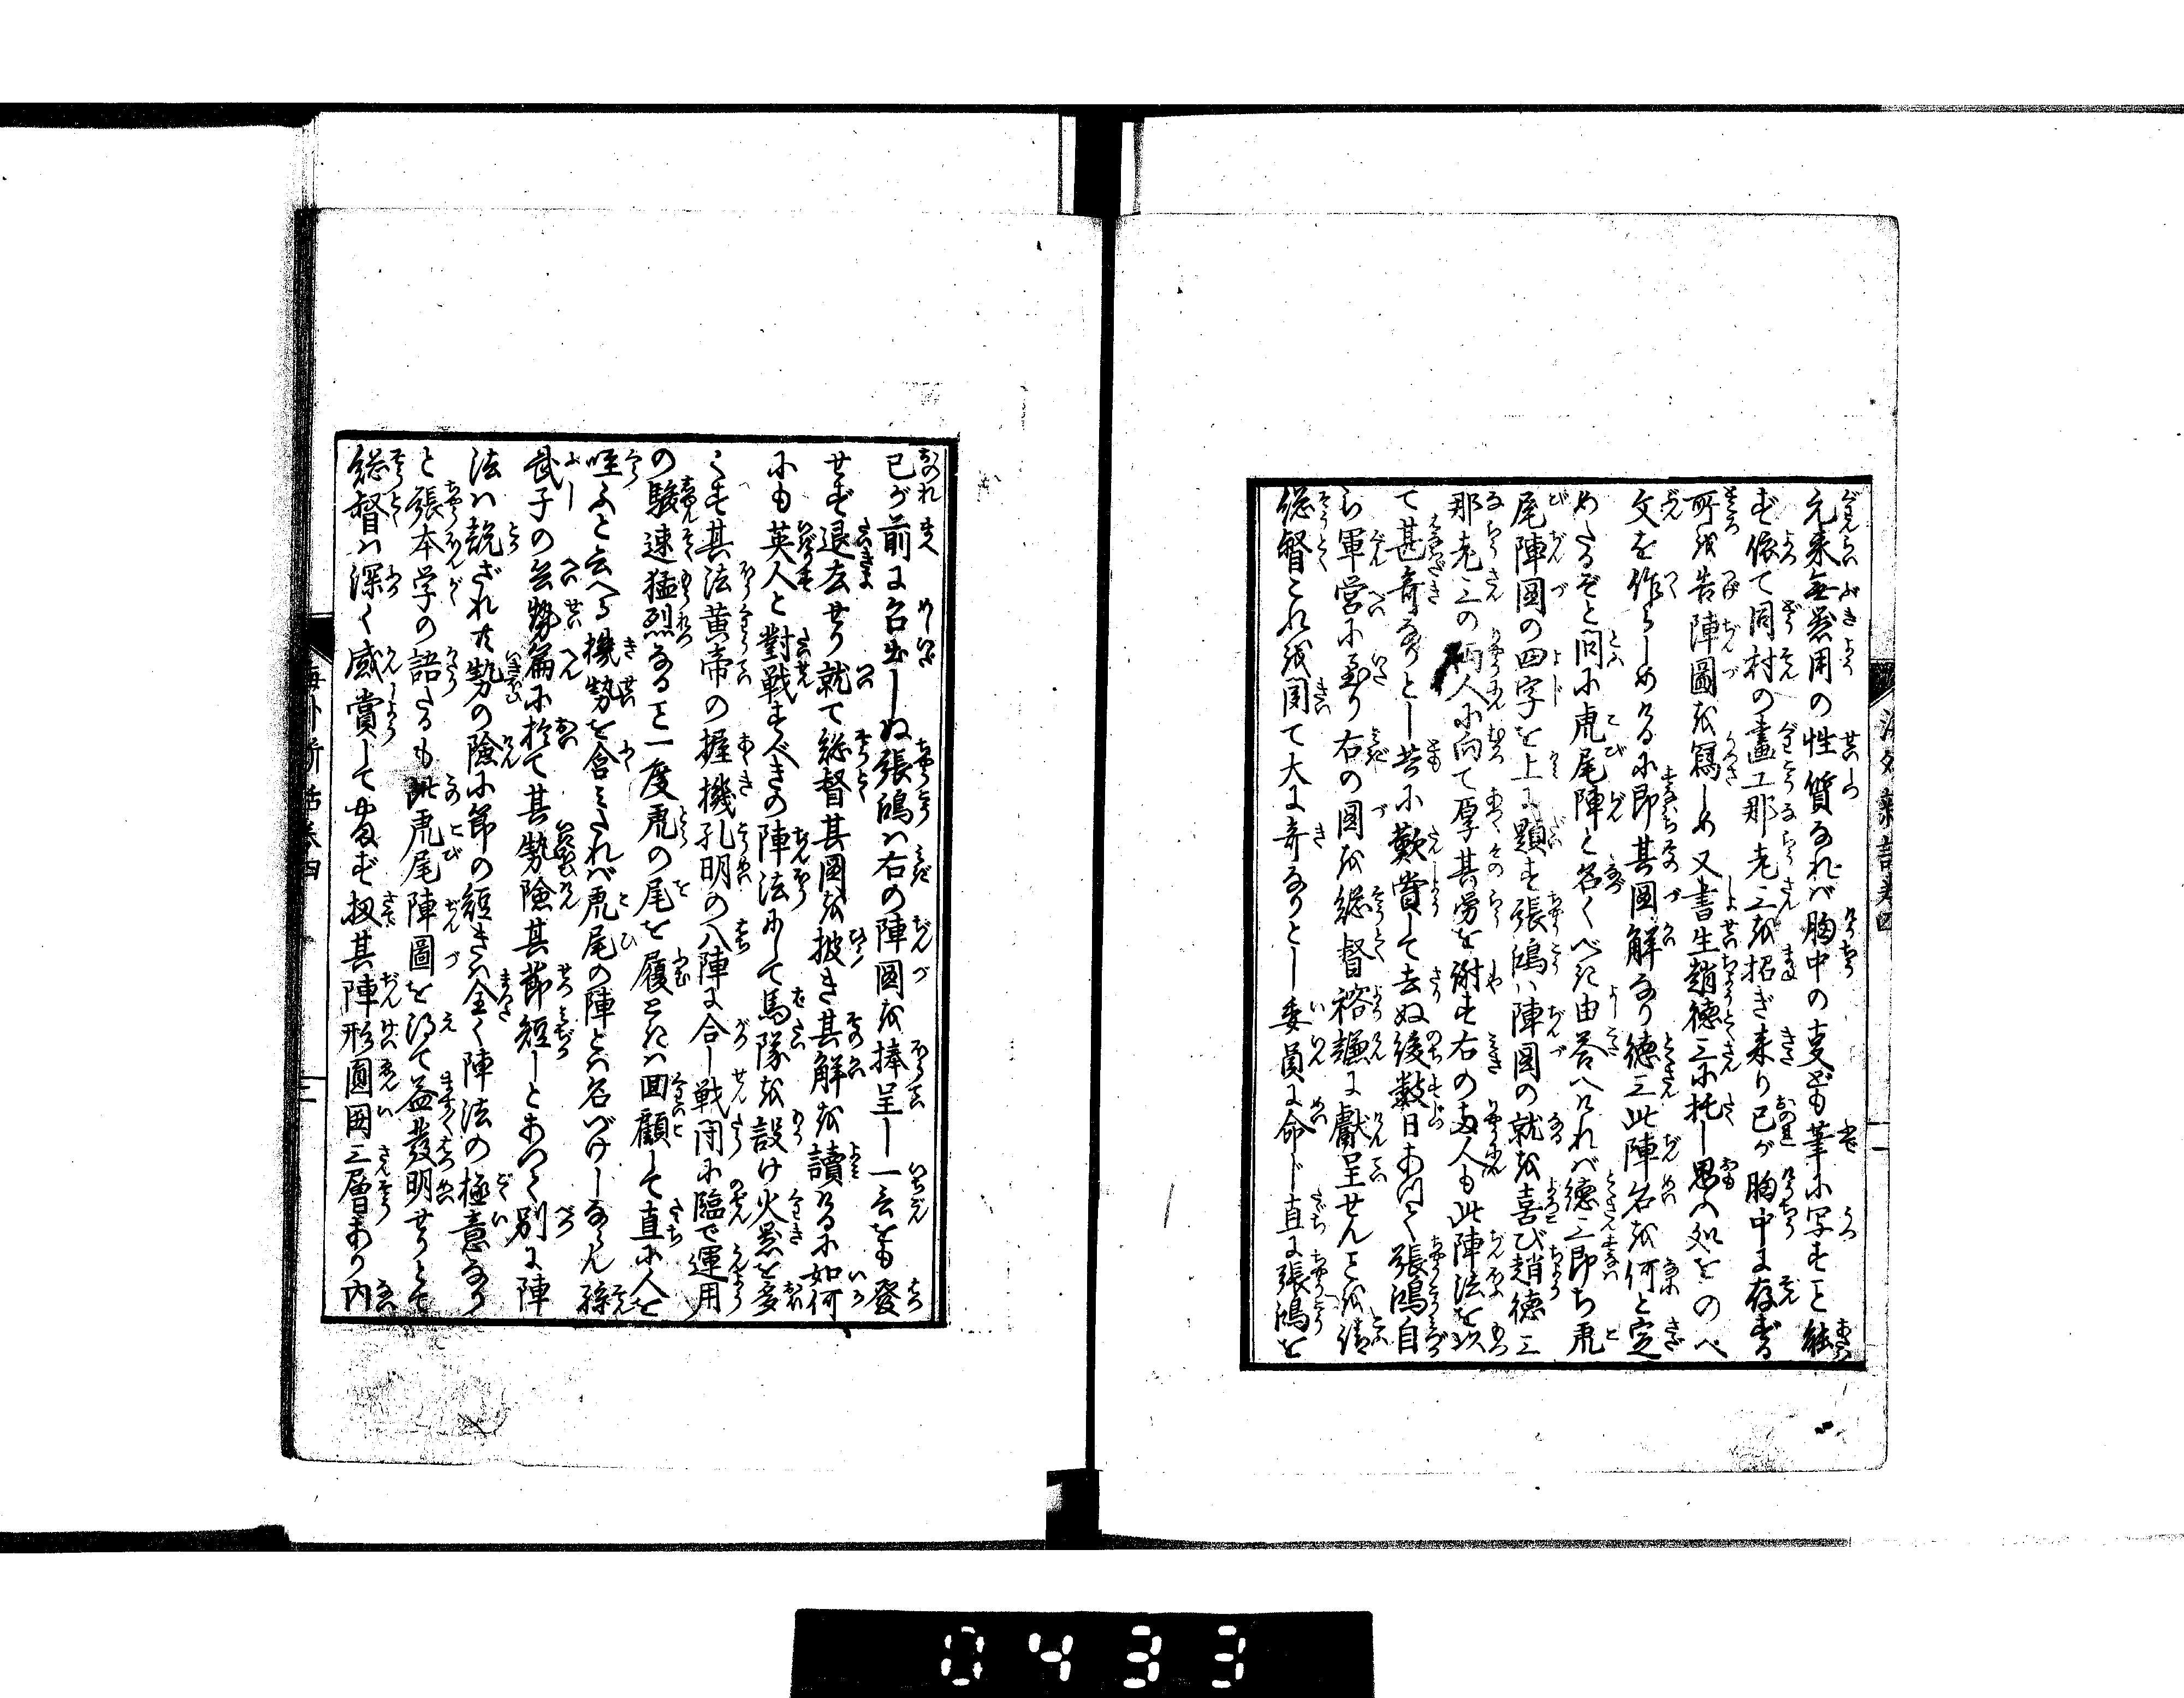 元来無器用の性質なれば胸中の事ども筆に写すこと能
ず依て同村の畫工那老三を招ぎ来り己が胸中に存ずる
所を告陣圖を寫しめ又書生趙徳三に托し思ふ処をのべ
文を作らしめけるに即其圖解なり徳三此陣名を何と定
めたるぞと問に虎尾陣と名くべき由答へければ徳三即ち虎
尾陣圖の四字を上に題す張鴻ハ陣図の就を喜び趙徳三
那老三の両人に向て厚其労を謝す右の両人も此陣法を以
て甚奇なりとし共に歎賞して去ぬ後数日あつて張鴻自
ら軍営に至り右の図を総督裕謙に獻呈せんことを請
総督これを聞て大に奇なりとし委員に命じ直に張鴻を
己が前に召出しぬ張鴻ハ右の陣図を捧呈し一言をも發
せず退去せり就て総督其圖を披き其解を讀けるに如何
にも英人と對戦すべきの陣法にして馬隊を設け火器を多
くす其法黄帝の握機孔明の八陣に合し戦闘に臨で運用
の駿速猛烈なること一度虎の尾を履ときハ回顧して直に人を
咥ふと云へる機勢を含みたれバ虎尾の陣とハ名づけしならん孫
武子の兵勢篇に於て其勢險其節短しとあつて別に陣
法ハ説ざれ共勢の險に節の短きハ全く陣法の極意なり
と張本学の語たるも此虎尾陣圖を得て益發明せりとて
総督ハ深く感賞して止ず扨其陣形圓圍三層あり内
海外新話巻四
三
0433